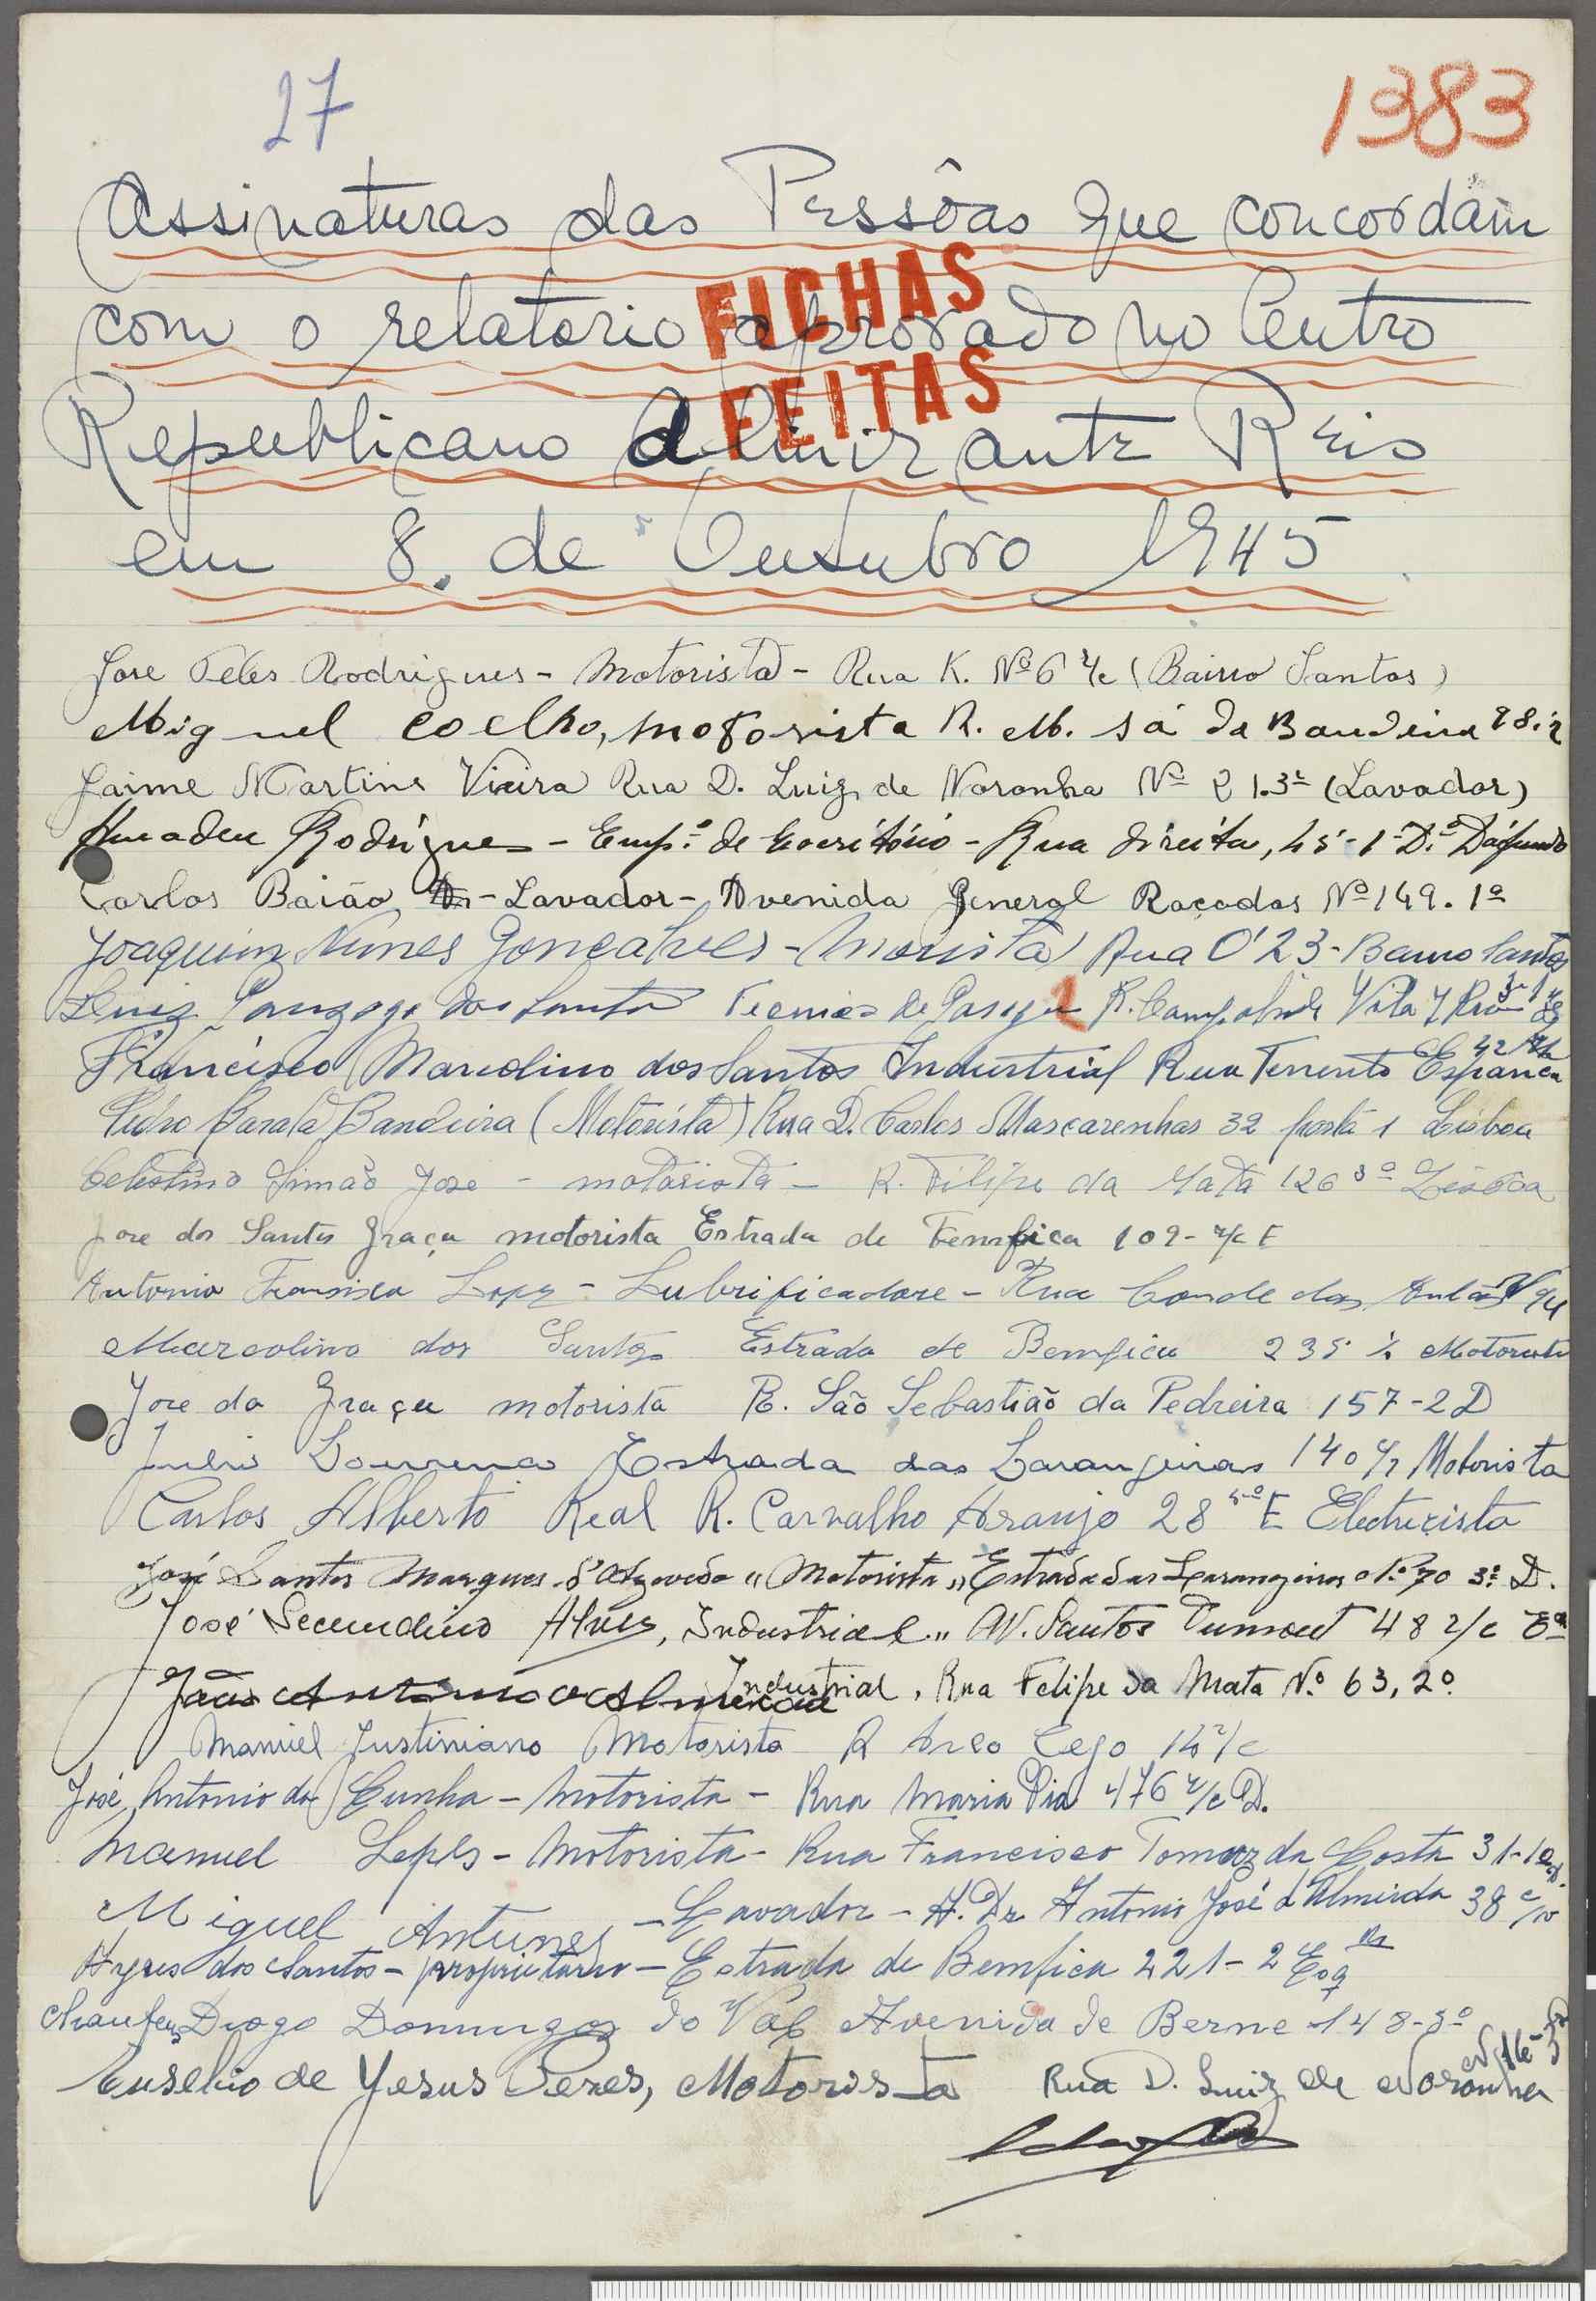 27
1383
Assinaturas das Pessôas que concordam
com o relatorio aprovado no Centro
FICHAS
FEITAS
Republicano Almirante Reis
em 8. de Outubro 1945
Jose Teles Rodrigues - Motorista - Rua K. Nº 6 r/c (Bairro Santos)
Miguel Coelho, motorista R. M. Sá da Bandeira
Jaime Martins Vieira Rua D. Luiz de Noronha Nº 21.3º (Lavador)
Amadeu Rodrigues - Emp.º de Escritório - Rua direita, 45-1º D.º Dáfundo
Carlos Baião - Lavador - Avenida General Roçadas Nº 149. 1º
Joaquim Nunes Gonçalves - Morista Rua O' 23 - Bairro Santos
Luiz Gonzaga dos Santos Tecnico de R. Campolide Vila
Francisco Marcolino dos Santos Industrial Rua Tenente Espanca 42 r/c
Pedro Barata Bandeira (Motorista) Rua D. Carlos Mascarenhas 32 porta 1 Lisboa
Celestino Simão Jose - motorista - R. Filipe da Mata 126 3º Lisboa
Jose dos Santos Graça motorista Estrada de Bemfica 109 - r/c E
Antonio Francisco Lopes - Lubrificadore - Rua Conde das Antas 94
Marcolino dos Santos Estrada de Bemfica 235 Motorista
Jose da Graça motorista R. São Sebastião da Pedreira 157-2D
Julio Lourenço Estrada das Larangeiras 140 Motorista
Carlos Alberto Real R. Carvalho Araujo 28 5º E Electricista
José Santos Marques d'Azevedo "Motorista" Estrada das Larangeiras Nº 70 3º D.
José Secundino Alves, Industrial" AV. Santos Dumont 48 r/c Eº
João Antonio Almeida Industrial, Rua Felipe da Mata Nº 63, 2º
Manuel Justiniano Motorista R Arco Cego 14 r/c
José Antonio da Cunha - Motorista - Rua Maria Pia 476 r/c D.
Manuel Lopes - Motorista - Rua Francisco Tomaz da Costa 31-1º
Miguel Antunes - Lavador - A. Dr Antonio José d'Almeida 38 c/v
Ayres dos Santos - proprietario - Estrada de Bemfica 221 - 2 Esq
Chaufeur Diogo Domingos do Vale Avenida de Berne 148-3º
Eusebio de Jesus Peres, Motorista Rua D. Luiz de Noronha